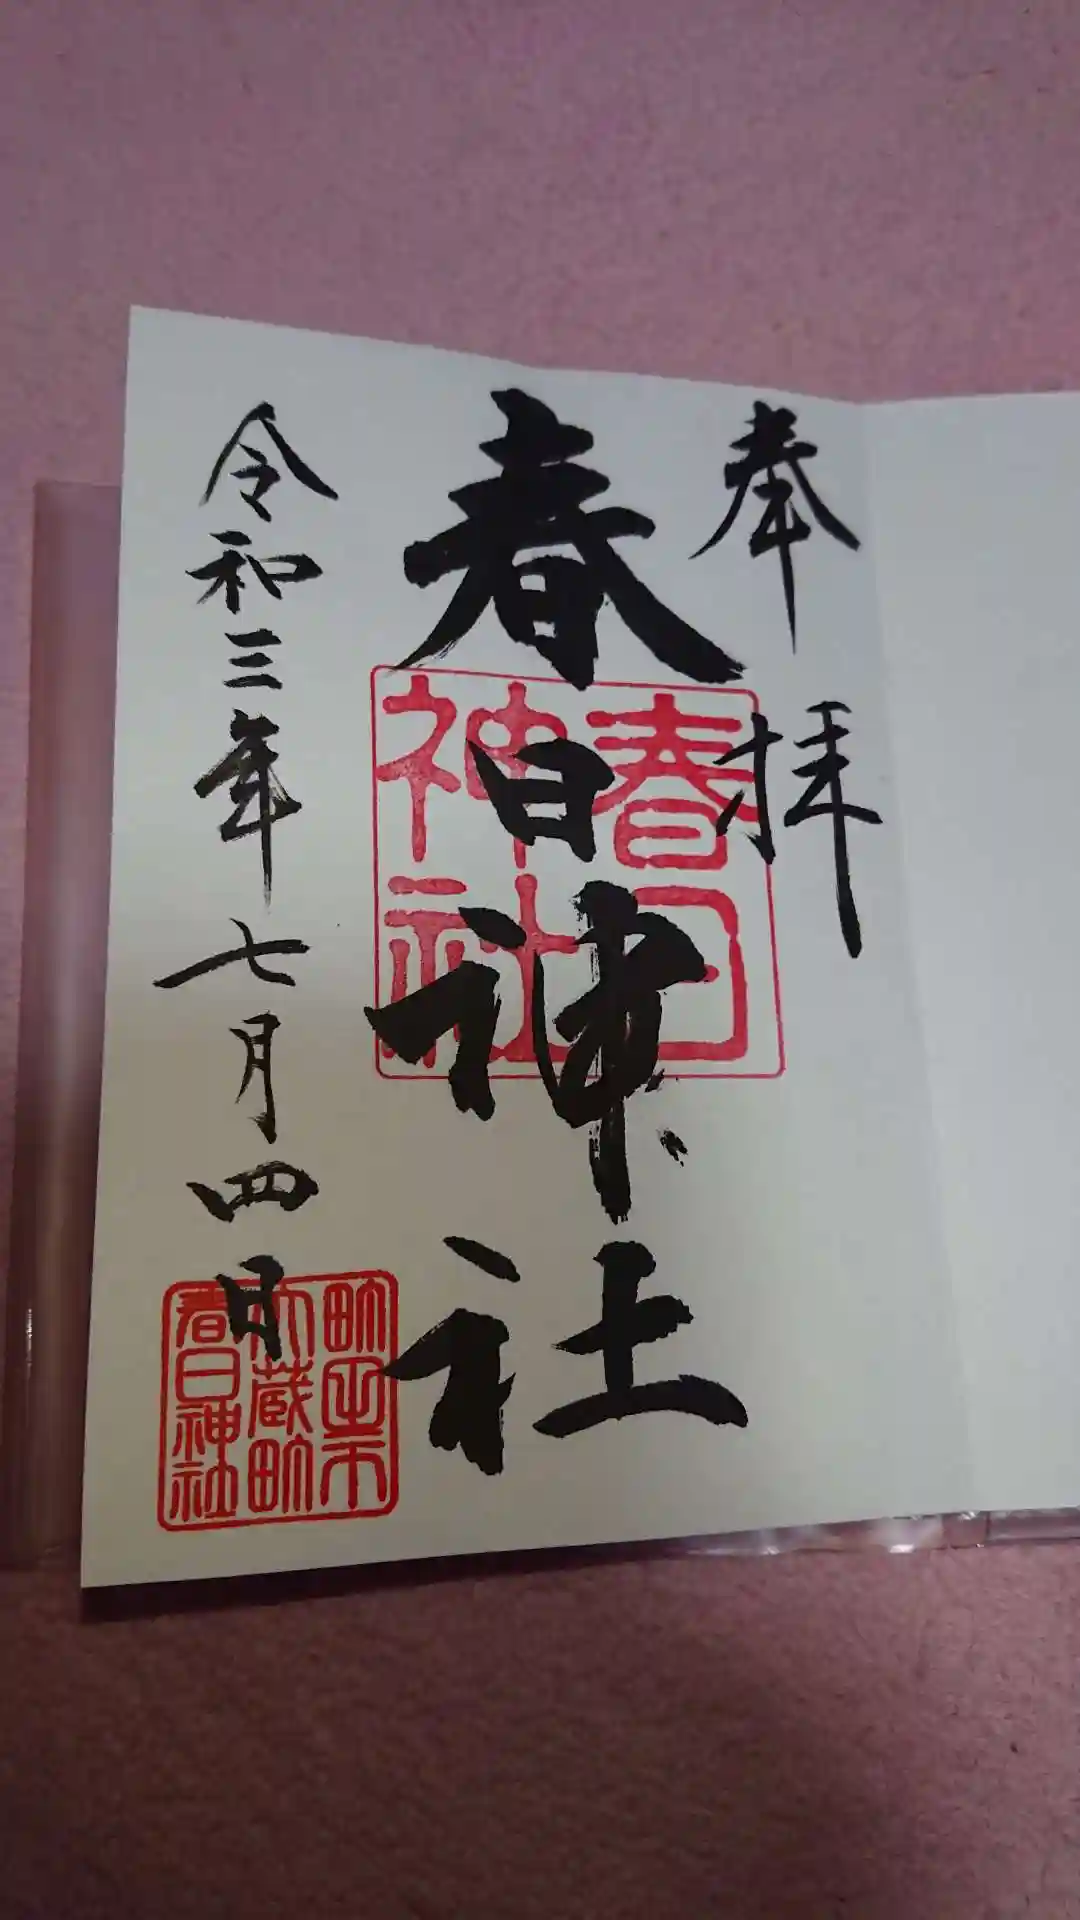 奉拝
春日神社
令和三年七月四日
春日
神社
町田市
大蔵町
春日神社